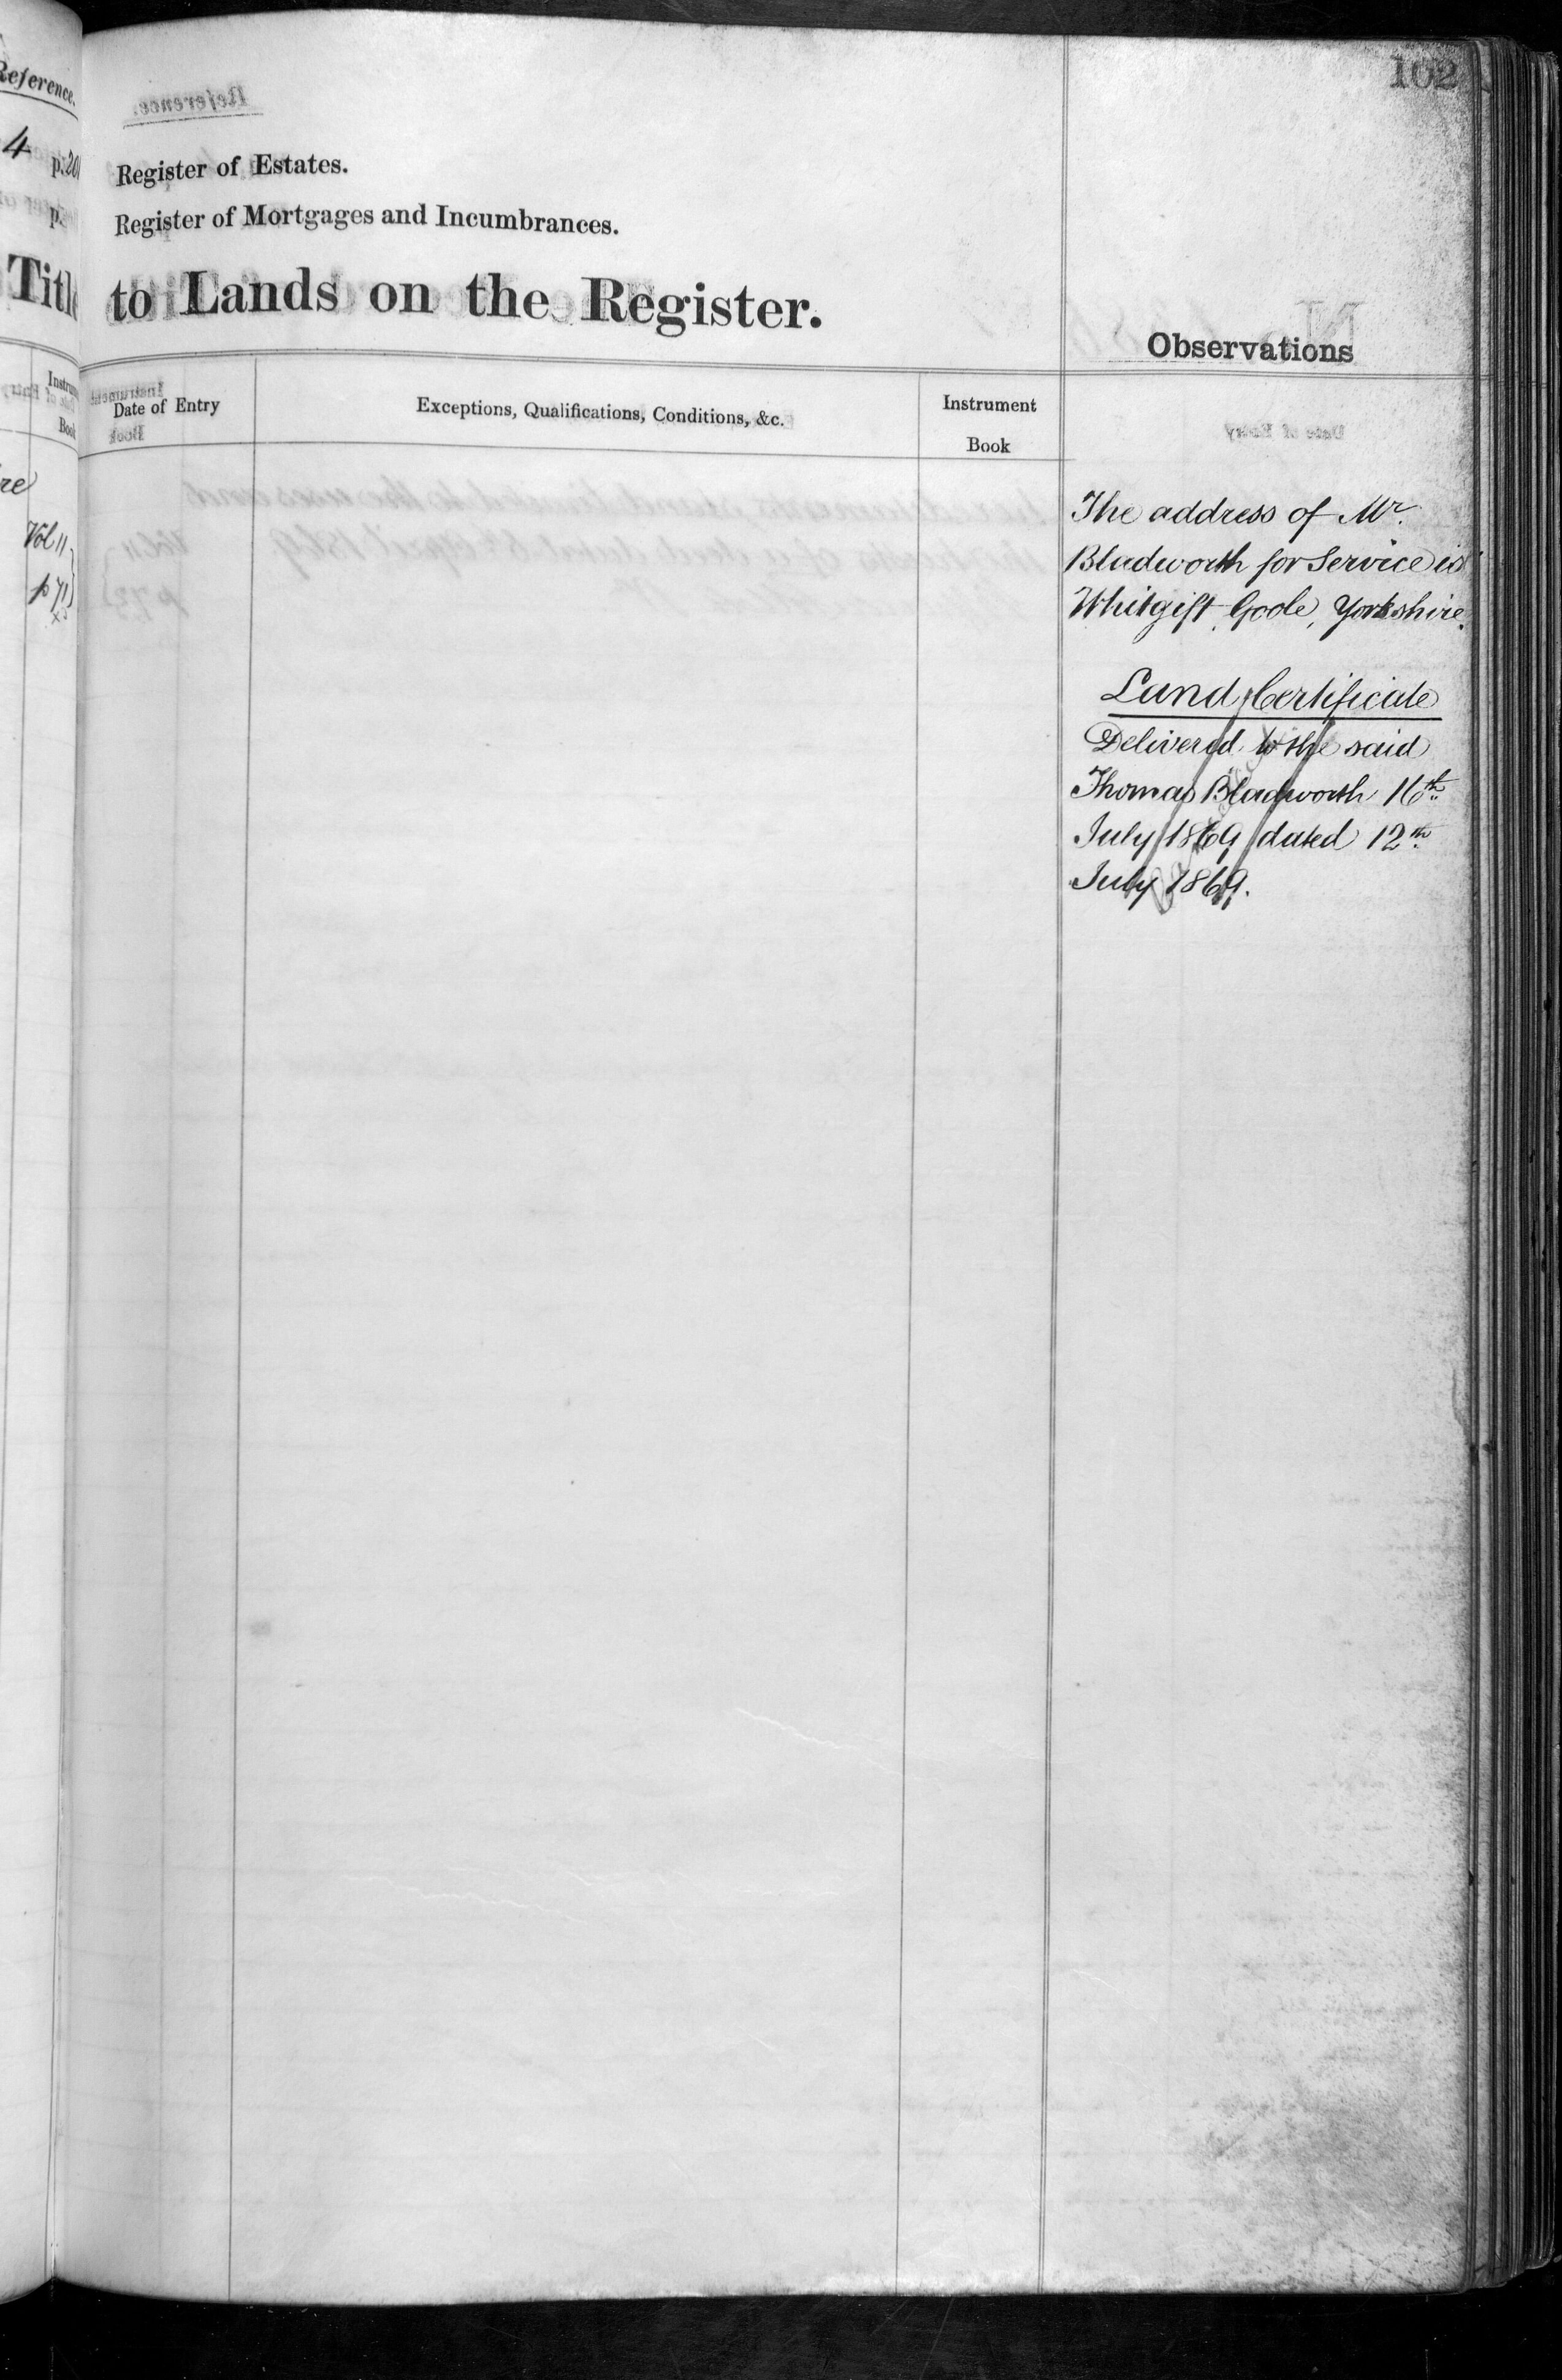 Reference.
4 p. 20
p.
Title
Book
Vol 11
p 71
102
Register of Estates.
Register of Mortgages and Incumbrances.
to Lands on the Register.
Observations
Date of Entry
Exceptions, Qualifications, Conditions, &c.
Instrument
Book
The address of Mr.
Bladworth for Service is
Whitgift, Goole, Yorkshire.
Land Certificate
Delivered to the said
Thomas Bladworth 16th
July 1869 dated 12th
July 1869.